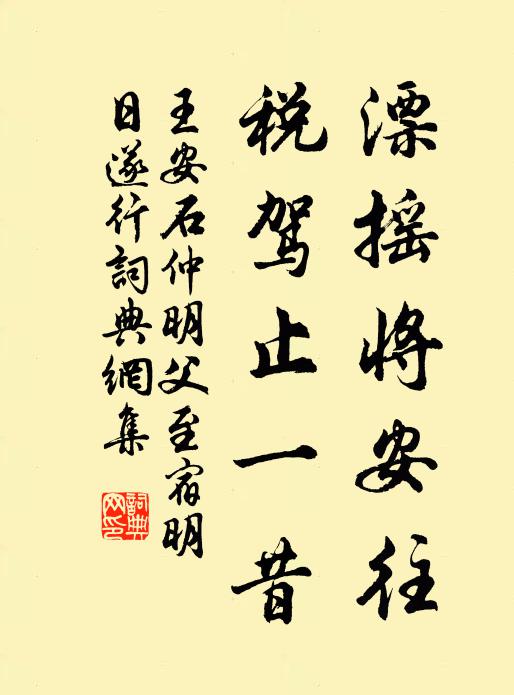 漂摇將安往
税駕止一昔
王安石仲明父至宿明
日遂行詞典網集
詞典
网印